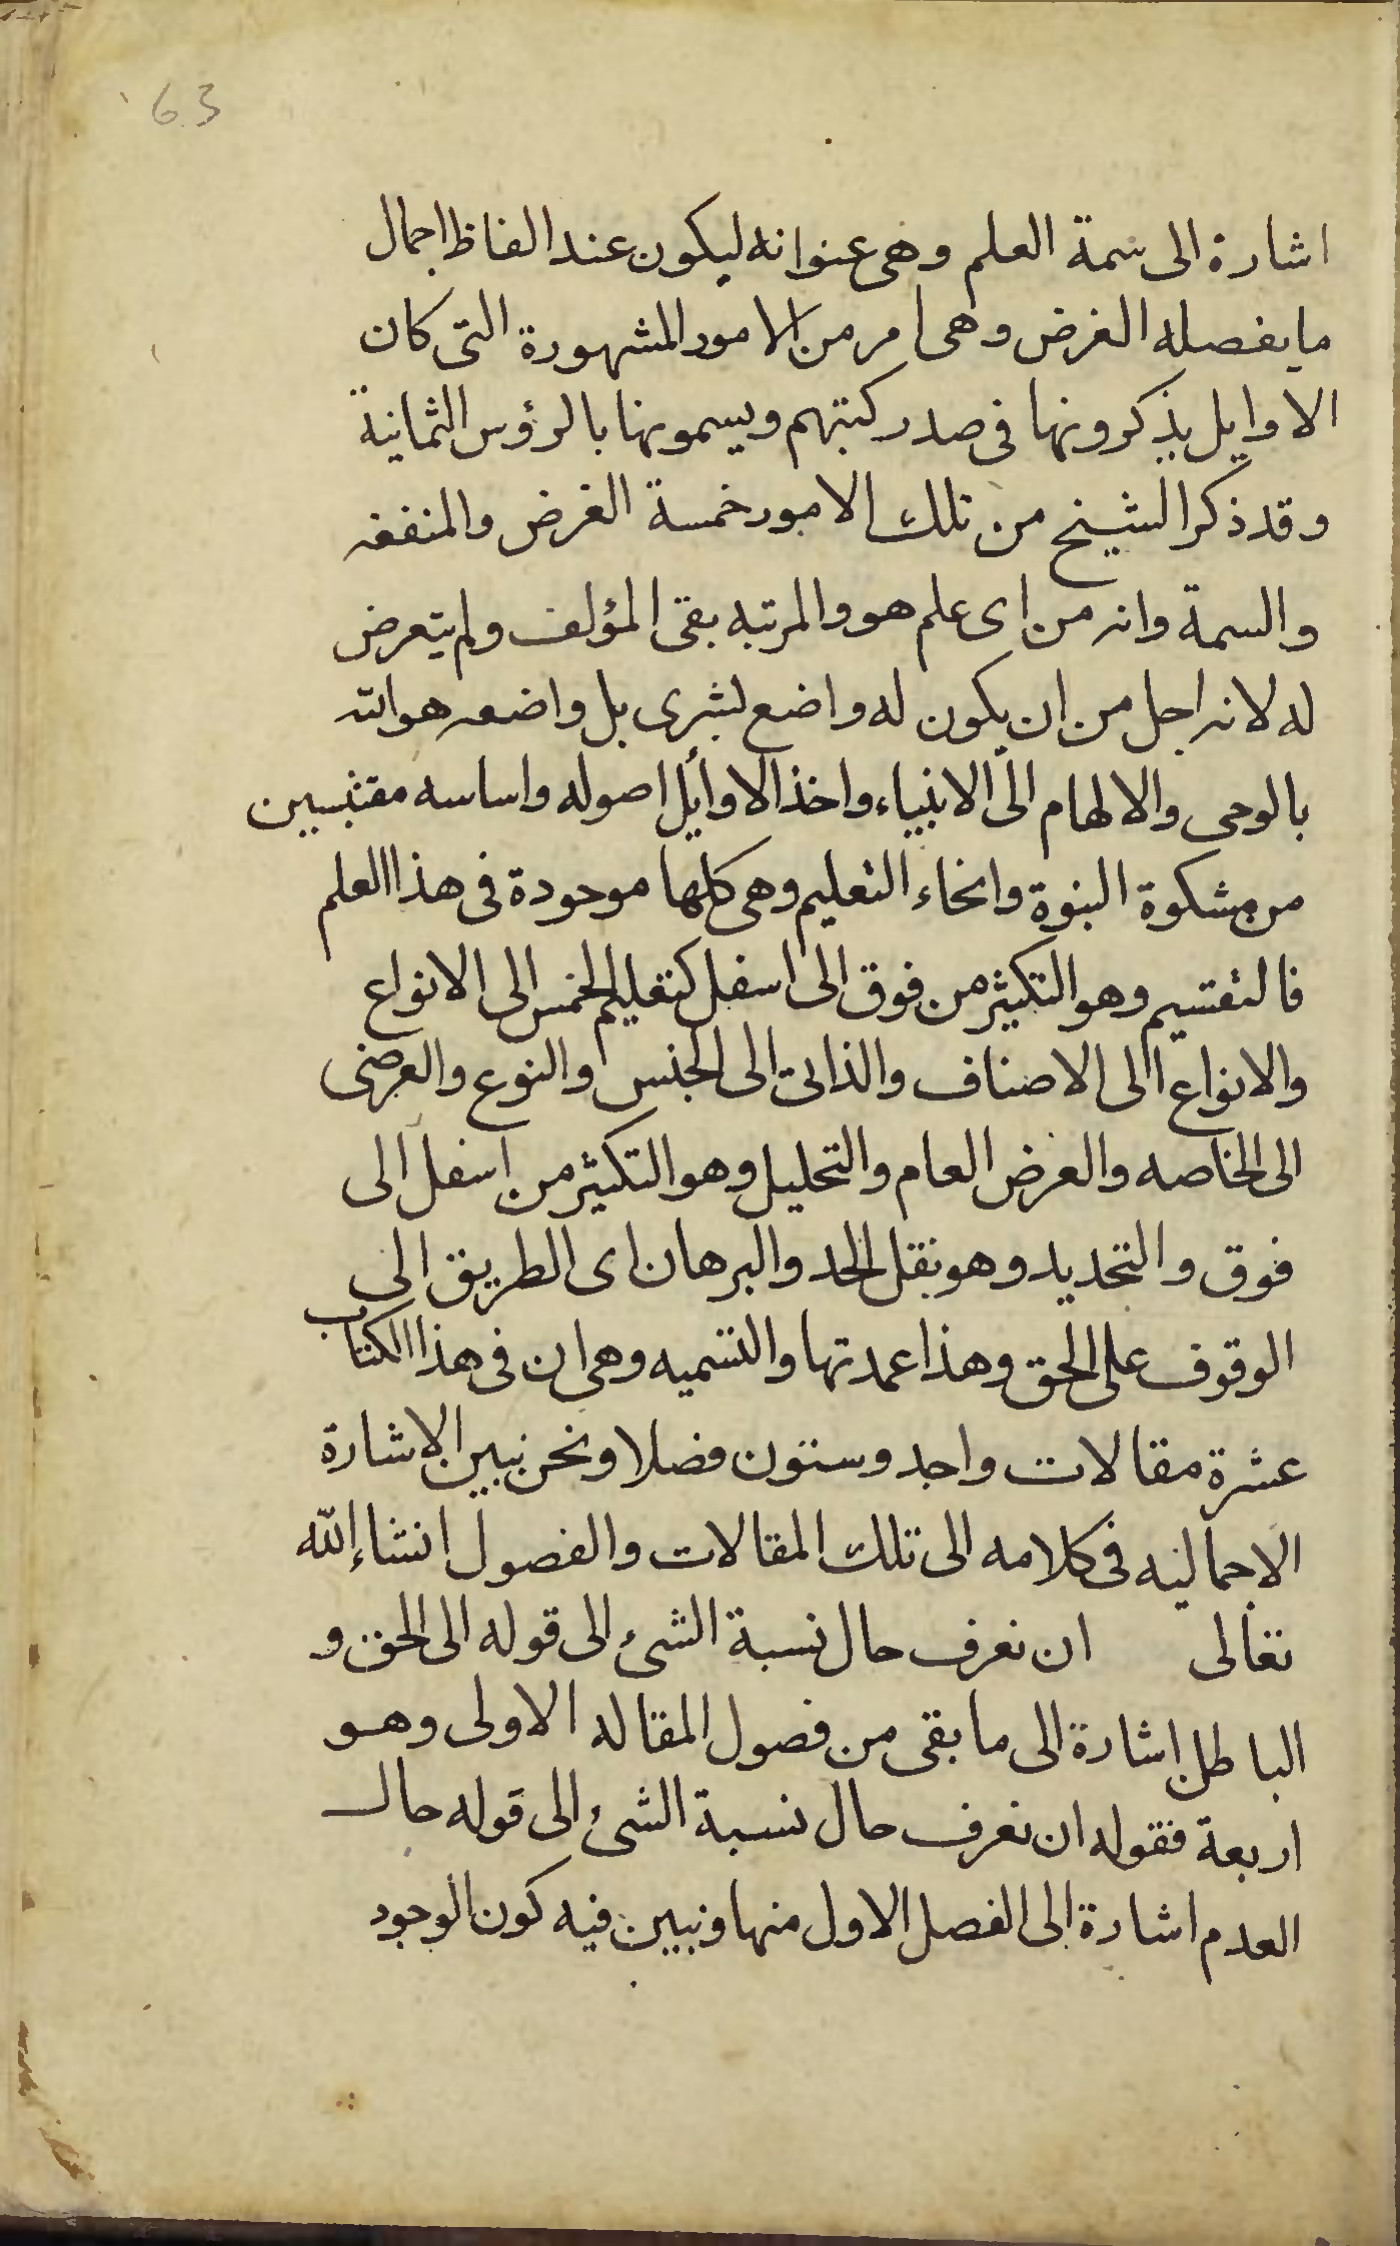 63
اشارة الى سمة العلم وهى عنوانه ليكون عند الفاظ اجمال
ما يفصله الغرض وهى امر من الامور المشهورة التى كان
الاوايل يذكرونها فى صدر كتبهم ويسمونها بالرؤس الثمانية
وقد ذكر الشيخ من تلك الامور خمسة الغرض والمنفعه
والسمة وانه من اى علم هو والمرتبه بقى المؤلف ولم يتعرض
له لانه اجل من ان يكون له واضع بشرى بل واضعه هو الله
بالوحى والالهام الى الانبياء واخذ الاوايل اصوله واساسه مقتبسين
من مشكوة النبوة وانحاء التعليم وهى كلها موجودة فى هذا العلم
فالتقسيم وهو التكثير من فوق الى اسفل كتقليم الجنس الى الانواع
والانواع الى الاصناف والذاتى الى الجنس والنوع والعرضى
الى الخاصه والعرض العام والتحليل وهو التكثير من اسفل الى
فوق والتحديد وهو نقل الحد والبرهان اى الطريق الى
الوقوف على الحق وهذا عمدتها والتسميه وهى ان فى هذا الكتاب
عشرة مقالات واحد وستون فصلا ونحن نبين الاشارة
الاجماليه فى كلامه الى تلك المقالات والفصول انشاء الله
تعالى ان نعرف حال نسبة الشئ الى قوله الى الحق و
الباطل اشارة الى ما بقى من فصول المقاله الاولى وهو
اربعة فقوله ان نعرف حال نسبة الشئ الى قوله حال
العدم اشارة الى الفصل الاول منها ونبين فيه كون الوجود